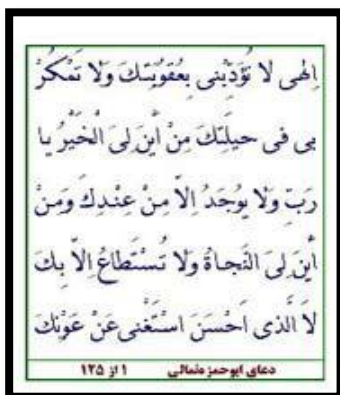 اِلهى لا تُؤَدِّبْنى بِعُقُوبَتِكَ وَلا تَمْكُرْ
بى فى حيلَتِكَ مِنْ اَيْنَ لِىَ الْخَيْرُ يا
رَبِّ وَلا يُوجَدُ اِلاّ مِنْ عِنْدِكَ وَمِنْ
اَيْنَ لِىَ النَّجاةُ وَلا تُسْتَطاعُ اِلاّ بِكَ
لاَ الَّذى اَحْسَنَ اسْتَغْنى عَنْ عَوْنِكَ
دعای ابوحمزه‌ثمالی ۱ از ۱۲۵